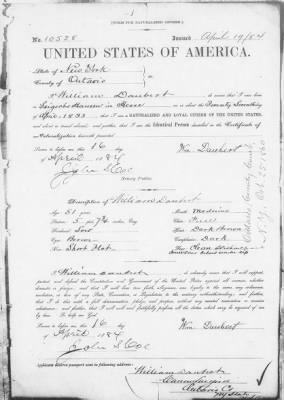 (FORM FOR NATURALIZED CITIZEN.)
No. 10528 Issued April 19/84
UNITED STATES OF AMERICA.
State of New York
County of Ontario
I William Daubert
in Hesse
April 1833 that I am a NATURALIZED AND LOYAL CITIZEN OF THE UNITED STATES,
and that I am the Identical Person described in the Certificate of
Naturalization herewith presented.
Sworn to before me this 16 day
of April 1884
Wm Daubert
John S Coe
(Notary Public)
Description of William Daubert
Age: 51 years
Mouth: Medium
Stature: 5 feet
Chin:
Forehead: Low
Hair: Dark Brown
Eyes: Brown
Complexion: Dark
Nose: Short Flat
Face:
I William Daubert do solemnly swear that I will support,
protect and defend the Constitution and Government of the United States against all enemies, whether
domestic or foreign; and that I will bear true faith, allegiance and loyalty to the same, any ordinance,
resolution, or law of any State, Convention, or Legislature to the contrary notwithstanding; and further,
that I do this with a full determination, pledge and purpose, without any mental reservation or evasion
whatsoever; and further, that I will well and faithfully perform all the duties which may be required of me
by law. So help me God.
Sworn to before me this 16 day
of April 1884
Wm Daubert
John S Coe
Applicant desires passport sent to following address:
William Daubert
Canandaigua
Ontario Co